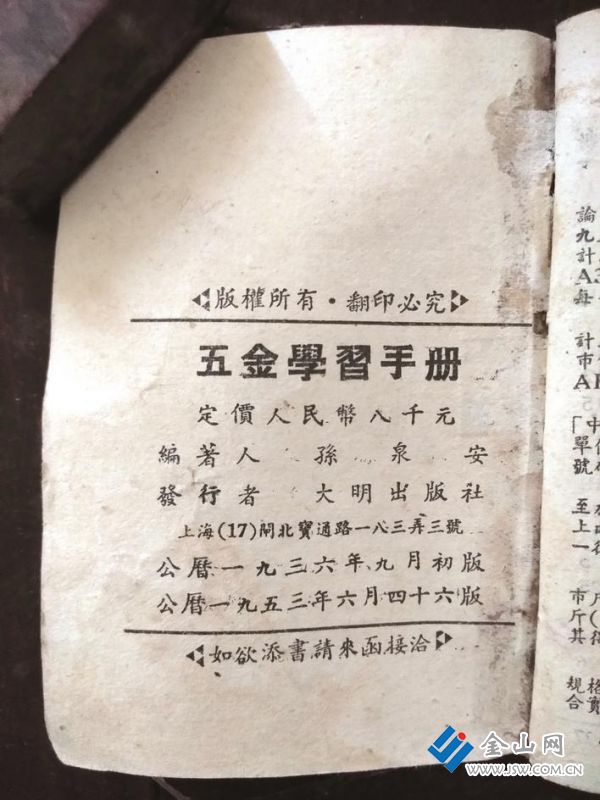 版權所有·翻印必究
五金學習手册
定價人民幣八千元
編著人 孫泉安
發行者 大明出版社
上海(17)閘北寶通路一八三弄三號
公曆一九三六年九月初版
公曆一九五三年六月四十六版
如欲添書請來函接洽
論
九
計
A3
每
計
市
A
「中
單
號
至
上
一
市斤
斤(
其
規格
合
金山网
www.JSW.COM.CN